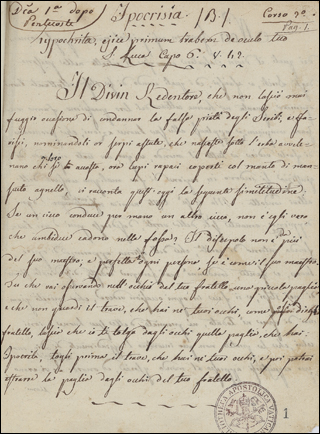 Dca 1a dopo Pentecoste
Ipocrisia. /B./
Corso 3o
Pag. 1.
hypochrita, ejice primum trabem de oculo tuo
S. Luca Capo 6. v. 42.
Il Divin Redentore, che non lasciò mai
fuggire occasione di condannar la falsa pietà degli Scribi, e Fa-
risei, nominandoli or serpi astute, che nascosto sotto l'erba
chi li or lupi rapaci coperti col manto di man-
sueto agnello, ci racconta quest'oggi la seguente similitudine.
Se un cieco conduce per mano un altro cieco, non è egli vero
che ambidue cadono nella fossa? Il discepolo non è più
del suo maestro, e perfetto ogni sarà se è come il suo maestro.
Tu che vai osservando nell'occhio del tuo fratello una piccola paglia,
e che non guardi il trave, che hai ne' tuoi occhi, come
fratello, lascia che io ti tolga dagli occhi quella paglia, che hai.
Ipocrita, togli prima il trave, che hai ne' tuoi occhi, e poi potrai
estrarre la paglia dagli occhi del tuo fratello.
BIBLIOTECA APOSTOLICA VATICANA
1